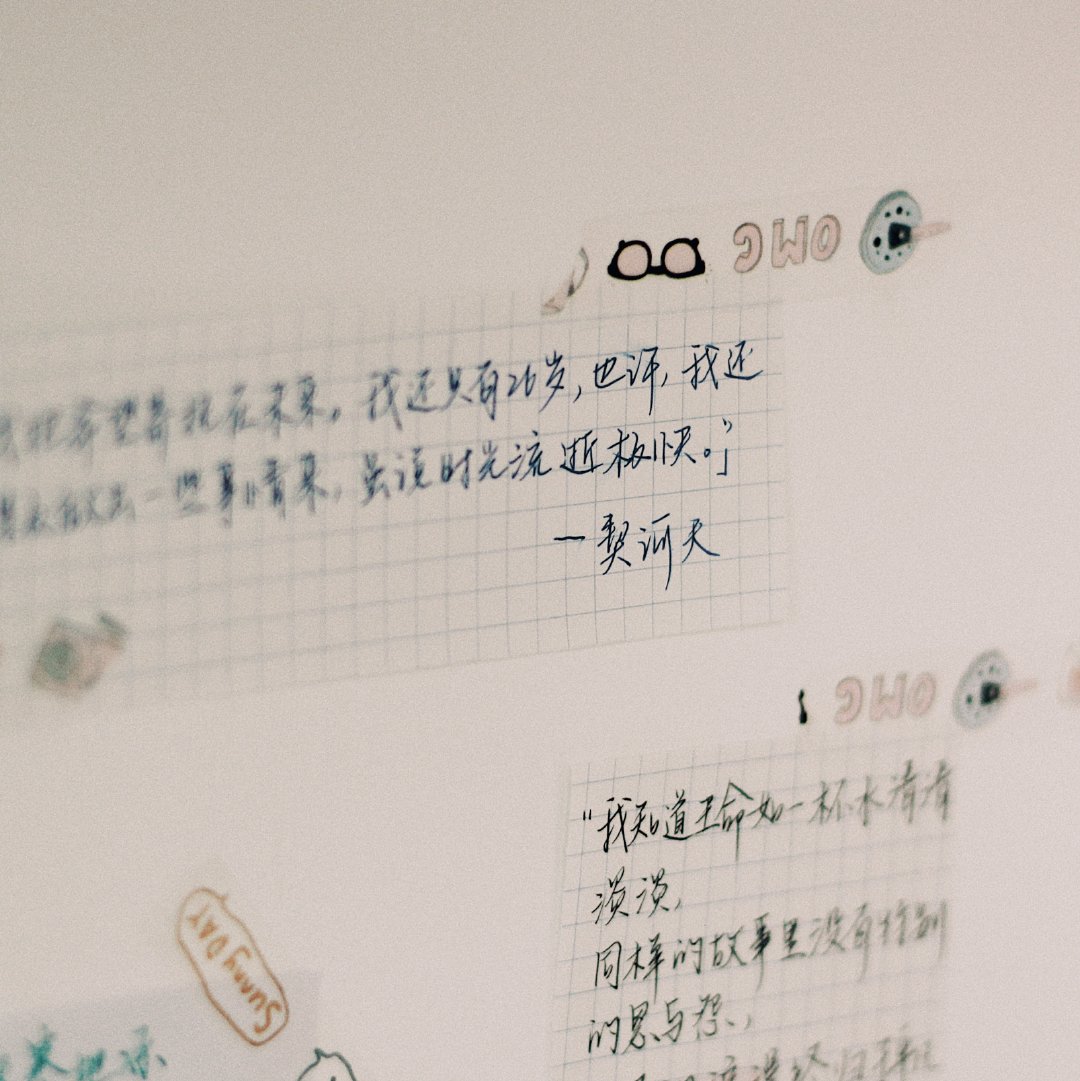 OMG
我把希望寄托在未来。我还只有26岁,也许,我还
一些事情来,虽说时光流逝极快。”
一契诃夫
OMG
“我知道生命如一杯水清清
淡淡,
同样的故事里没有特别
的恩与怨,
Sunny DAY